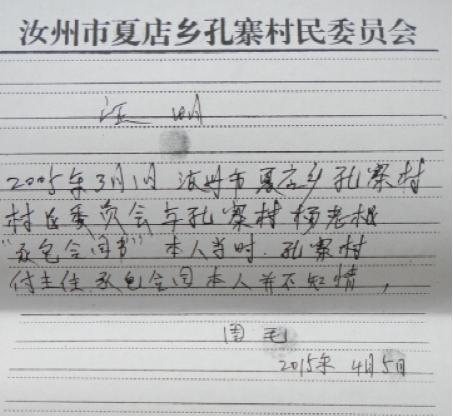 汝州市夏店乡孔寨村民委员会
证 明
2005年3月1日 汝州市夏店乡孔寨村
村民委员会与孔寨村杨老根
“承包合同书” 本人当时 孔寨村
付主任 承包合同本人并不知情,
周毛
2015年4月5日